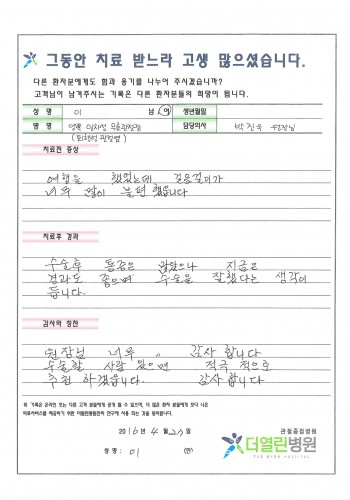 그동안 치료 받느라 고생 많으셨습니다.
다른 환자분에게도 힘과 용기를 나누어 주시겠습니까?
고객님이 남겨주시는 기록은 다른 환자분들의 희망이 됩니다.
성 명 이 남 여 생년월일
병 명 양쪽 일차성 무릎관절증 담당의사 박진욱 부장님
(퇴행성 관절염)
치료전 증상
여행을 했었는데 걸음걸이가
너무 많이 불편했습니다
치료후 결과
수술후 통증은 많았으나 지금은
결과도 좋으며 수술을 잘했다는 생각이
듭니다.
감사와 칭찬
원장님 너무 〃 감사 합니다
수술할 사람 있으면 적극 적으로
추천 하겠읍니다. 감사 합니다.
이 기록은 온라인 또는 다른 고객 분들에게 공개 될 수 있으며, 더 많은 환자 분들에게 보다 나은
의료서비스를 제공하기 위한 더열린병원만의 연구에 사용 되는 것을 동의합니다.
2016 년 4 월 20 일
성 명: 이 (인)
관절중점병원
더열린병원
THE OPEN HOSPITAL